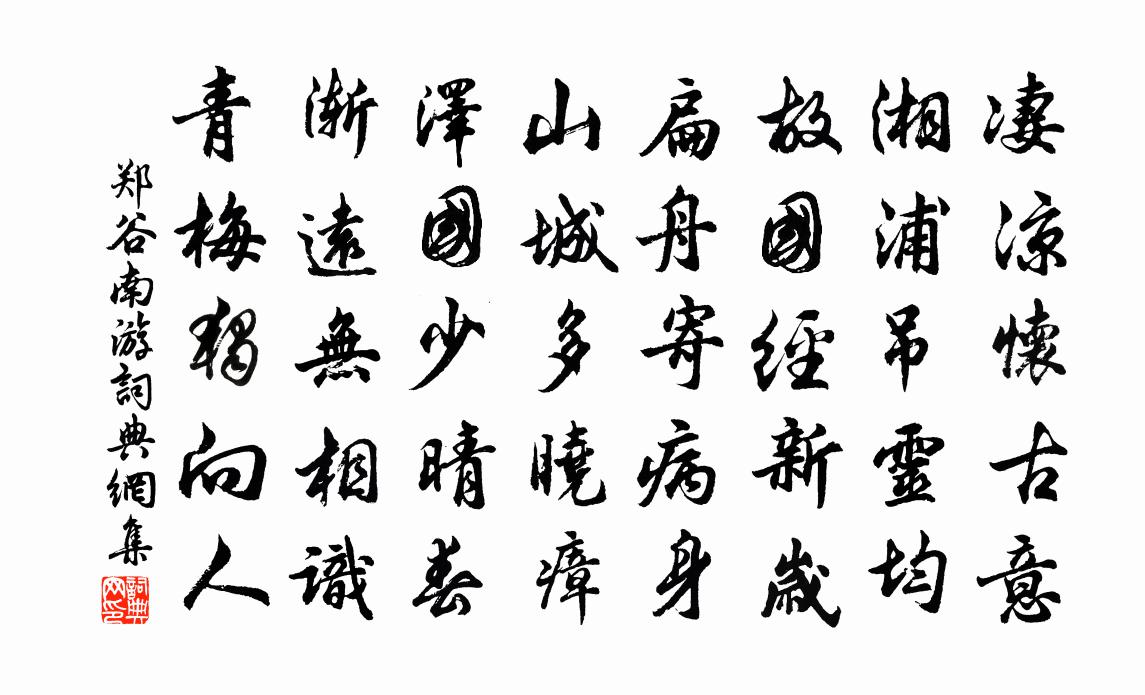 凄涼懷古意
湘浦吊靈均
故國經新歲
扁舟寄病身
山城多曉瘴
澤國少晴春
漸遠無相識
青梅獨向人
郑谷南游詞典網集
詞典网印